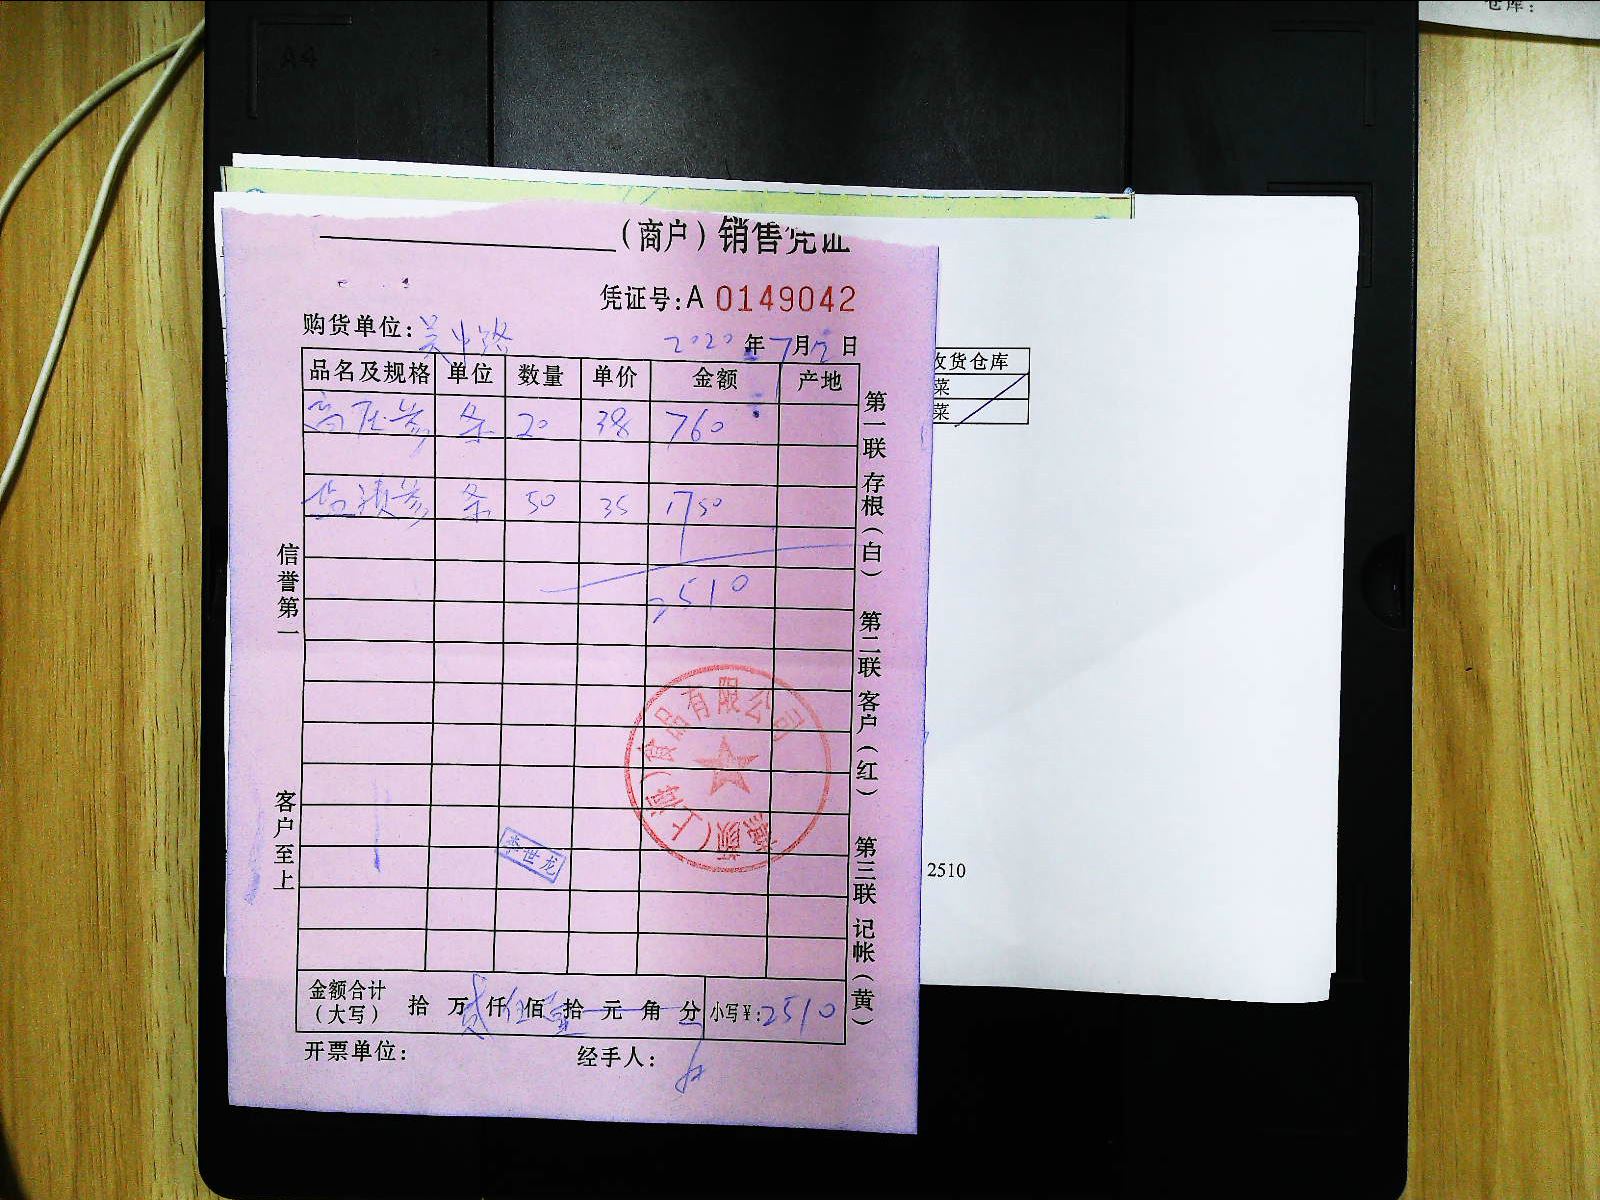 仓库：
A4
（商户）销售凭证
凭证号：A 0149042
购货单位：吴中路 2020年7月2日
品名及规格 单位 数量 单价 金额 产地
高压参 条 20 38 760
盐渍参 条 50 35 1750
2510
信誉第一
客户至上
第一联 存根（白） 第二联 客户（红） 第三联 记帐（黄）
颜（上海）食品有限公司
李世龙
金额合计（大写） 拾 万 贰仟 伍佰 壹拾 元 角 分 小写￥：2510
开票单位： 经手人：
收货仓库
菜
菜
2510